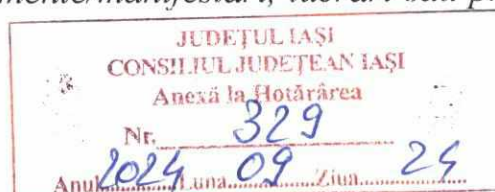 JUDEȚUL IAȘI
CONSILIUL JUDEȚEAN IAȘI
Anexă la Hotărârea
Nr. 329
Anul 2024 Luna 09 Ziua 24